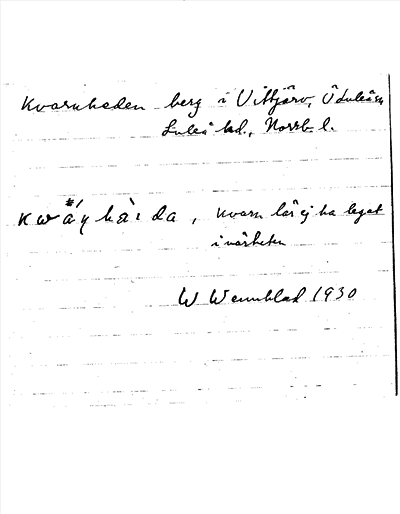 Kvarnheden berg i Vittjärv, Ö Luleå sn,
Luleå hd., Norrb. l.
kwä́ɳhàida, kvarn lär ej ha legat
i närheten
W Wennblad 1930